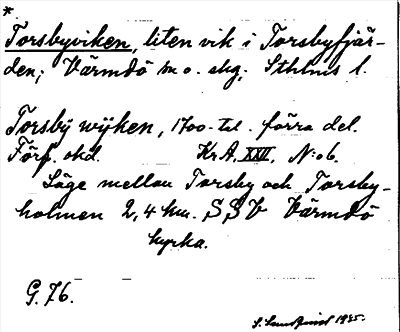 *
Torsbyviken, liten vik i Torsbyfjär-
den; Värmdö sn o. skg, Sthlms l.
Torsbÿ wÿken, 1700-tal. förra del.
Förf. okd. KrA. XXII, N:o 6.
Läge mellan Torsby och Torsby-
holmen 2,4 km. SSV Värmdö
kyrka.
G. 76.
S. 1935.